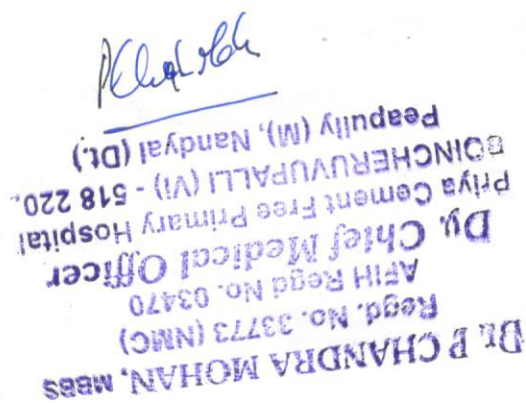 Dr. P CHANDRA MOHAN, MBBS
Regd. No. 33773 (NMC)
AFIH Regd No. 03470
Dy. Chief Medical Officer
Priya Cement Free Primary Hospital
BOINCHERUVUPALLI (Vi) - 518 220.
Peapully (M), Nandyal (Dt.)